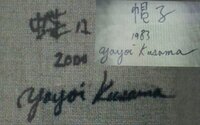 2000
yayoi Kusama
帽子
1983
yayoi Kusama